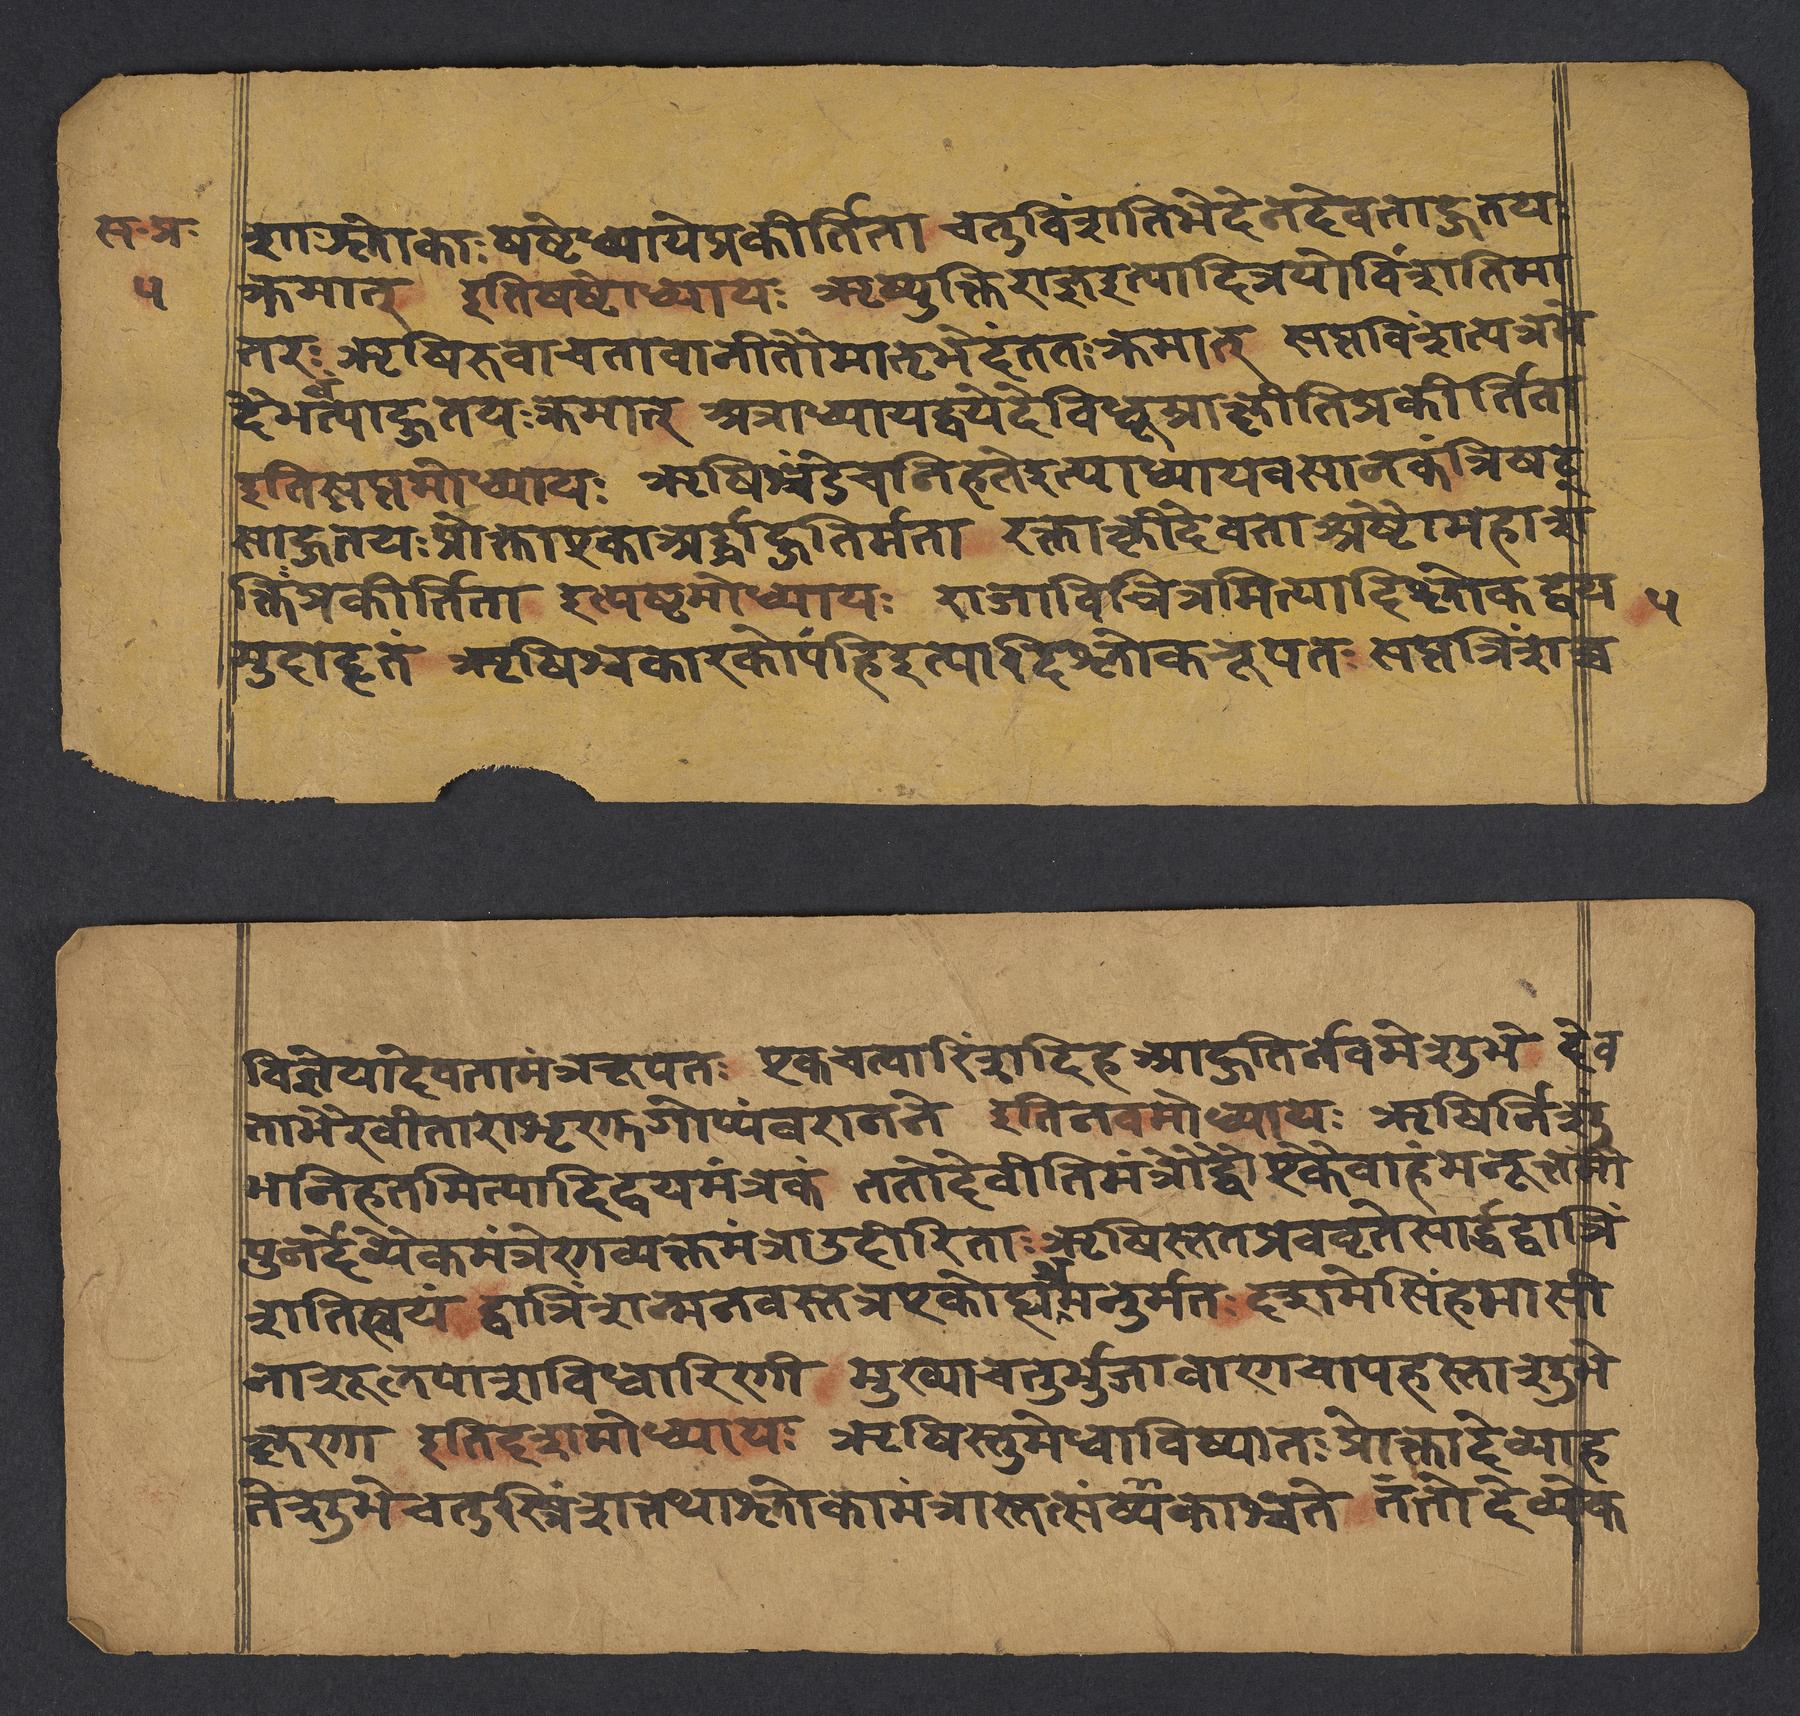 स॰प्र॰
५
शाःश्लोकाःषष्टेध्यायेप्रकीर्तिता चतुर्विंशतिभेदेनदेवताहुतयः
क्रमात् इतिषष्टोध्यायः ऋष्युक्तिराज्ञइत्यादित्रयोविंशतिमा
तरः ऋषिरुवाचतावानीतौमातृभेदंततःक्रमात् सप्तविंशत्यत्रभे
देभर्वत्याहुतयःक्रमात् अत्राध्यायद्वयेदेविधूम्राक्षीतिप्रकीर्तिता
इतिसप्तमोध्यायः ऋषिश्चंडेचनिहतेइत्याध्यायवसानकंत्रिषट्
साहुतयःप्रोक्ताएकाअर्द्धाहुतिर्मता रक्ताक्षीदेवताअष्टौमहाश
क्तिःप्रकीर्तिता इत्यष्टमोध्यायः राजाविचित्रमित्यादिश्लोकद्वय
मुदाहृतं ऋषिश्चकारकोपंहिइत्यादिश्लोकरूपतः सप्तत्रिंशच्च
५
विज्ञेयादेवतामंत्ररूपतः एकचत्वारिंशदिहआहुतिर्नवमेशुभे देव
ताभैरवीताराशृरक्तगोप्यंवरानने इतिनवमोध्यायः ऋषिर्निशुं
भनिहतमित्यादिद्वयमंत्रकं ततोदेवीतिमंत्रौद्वौएकैवाहंमनूत्तमौ
पुनर्देव्येकमंत्रेणव्यक्तमंत्राउदीरिताः ऋषिस्ततप्रववृतेसार्द्धद्वात्रिं
शतिस्वयं द्वात्रिंशन्मनवस्तत्रएकोर्द्धोमनुर्मतः दशमेसिंहमासी
नाशूलपाशविधारिणी मुख्याचतुर्भुजाबाणचापहस्ताशुभे
क्षणा इतिदशमोध्यायः ऋषिस्तुमेधाविख्यातः प्रोक्तादेव्याह
तेशुभेचतुस्त्रिंशत्तथाश्लोकामंत्रास्तत्संख्यकाश्चते ततोदेव्येक